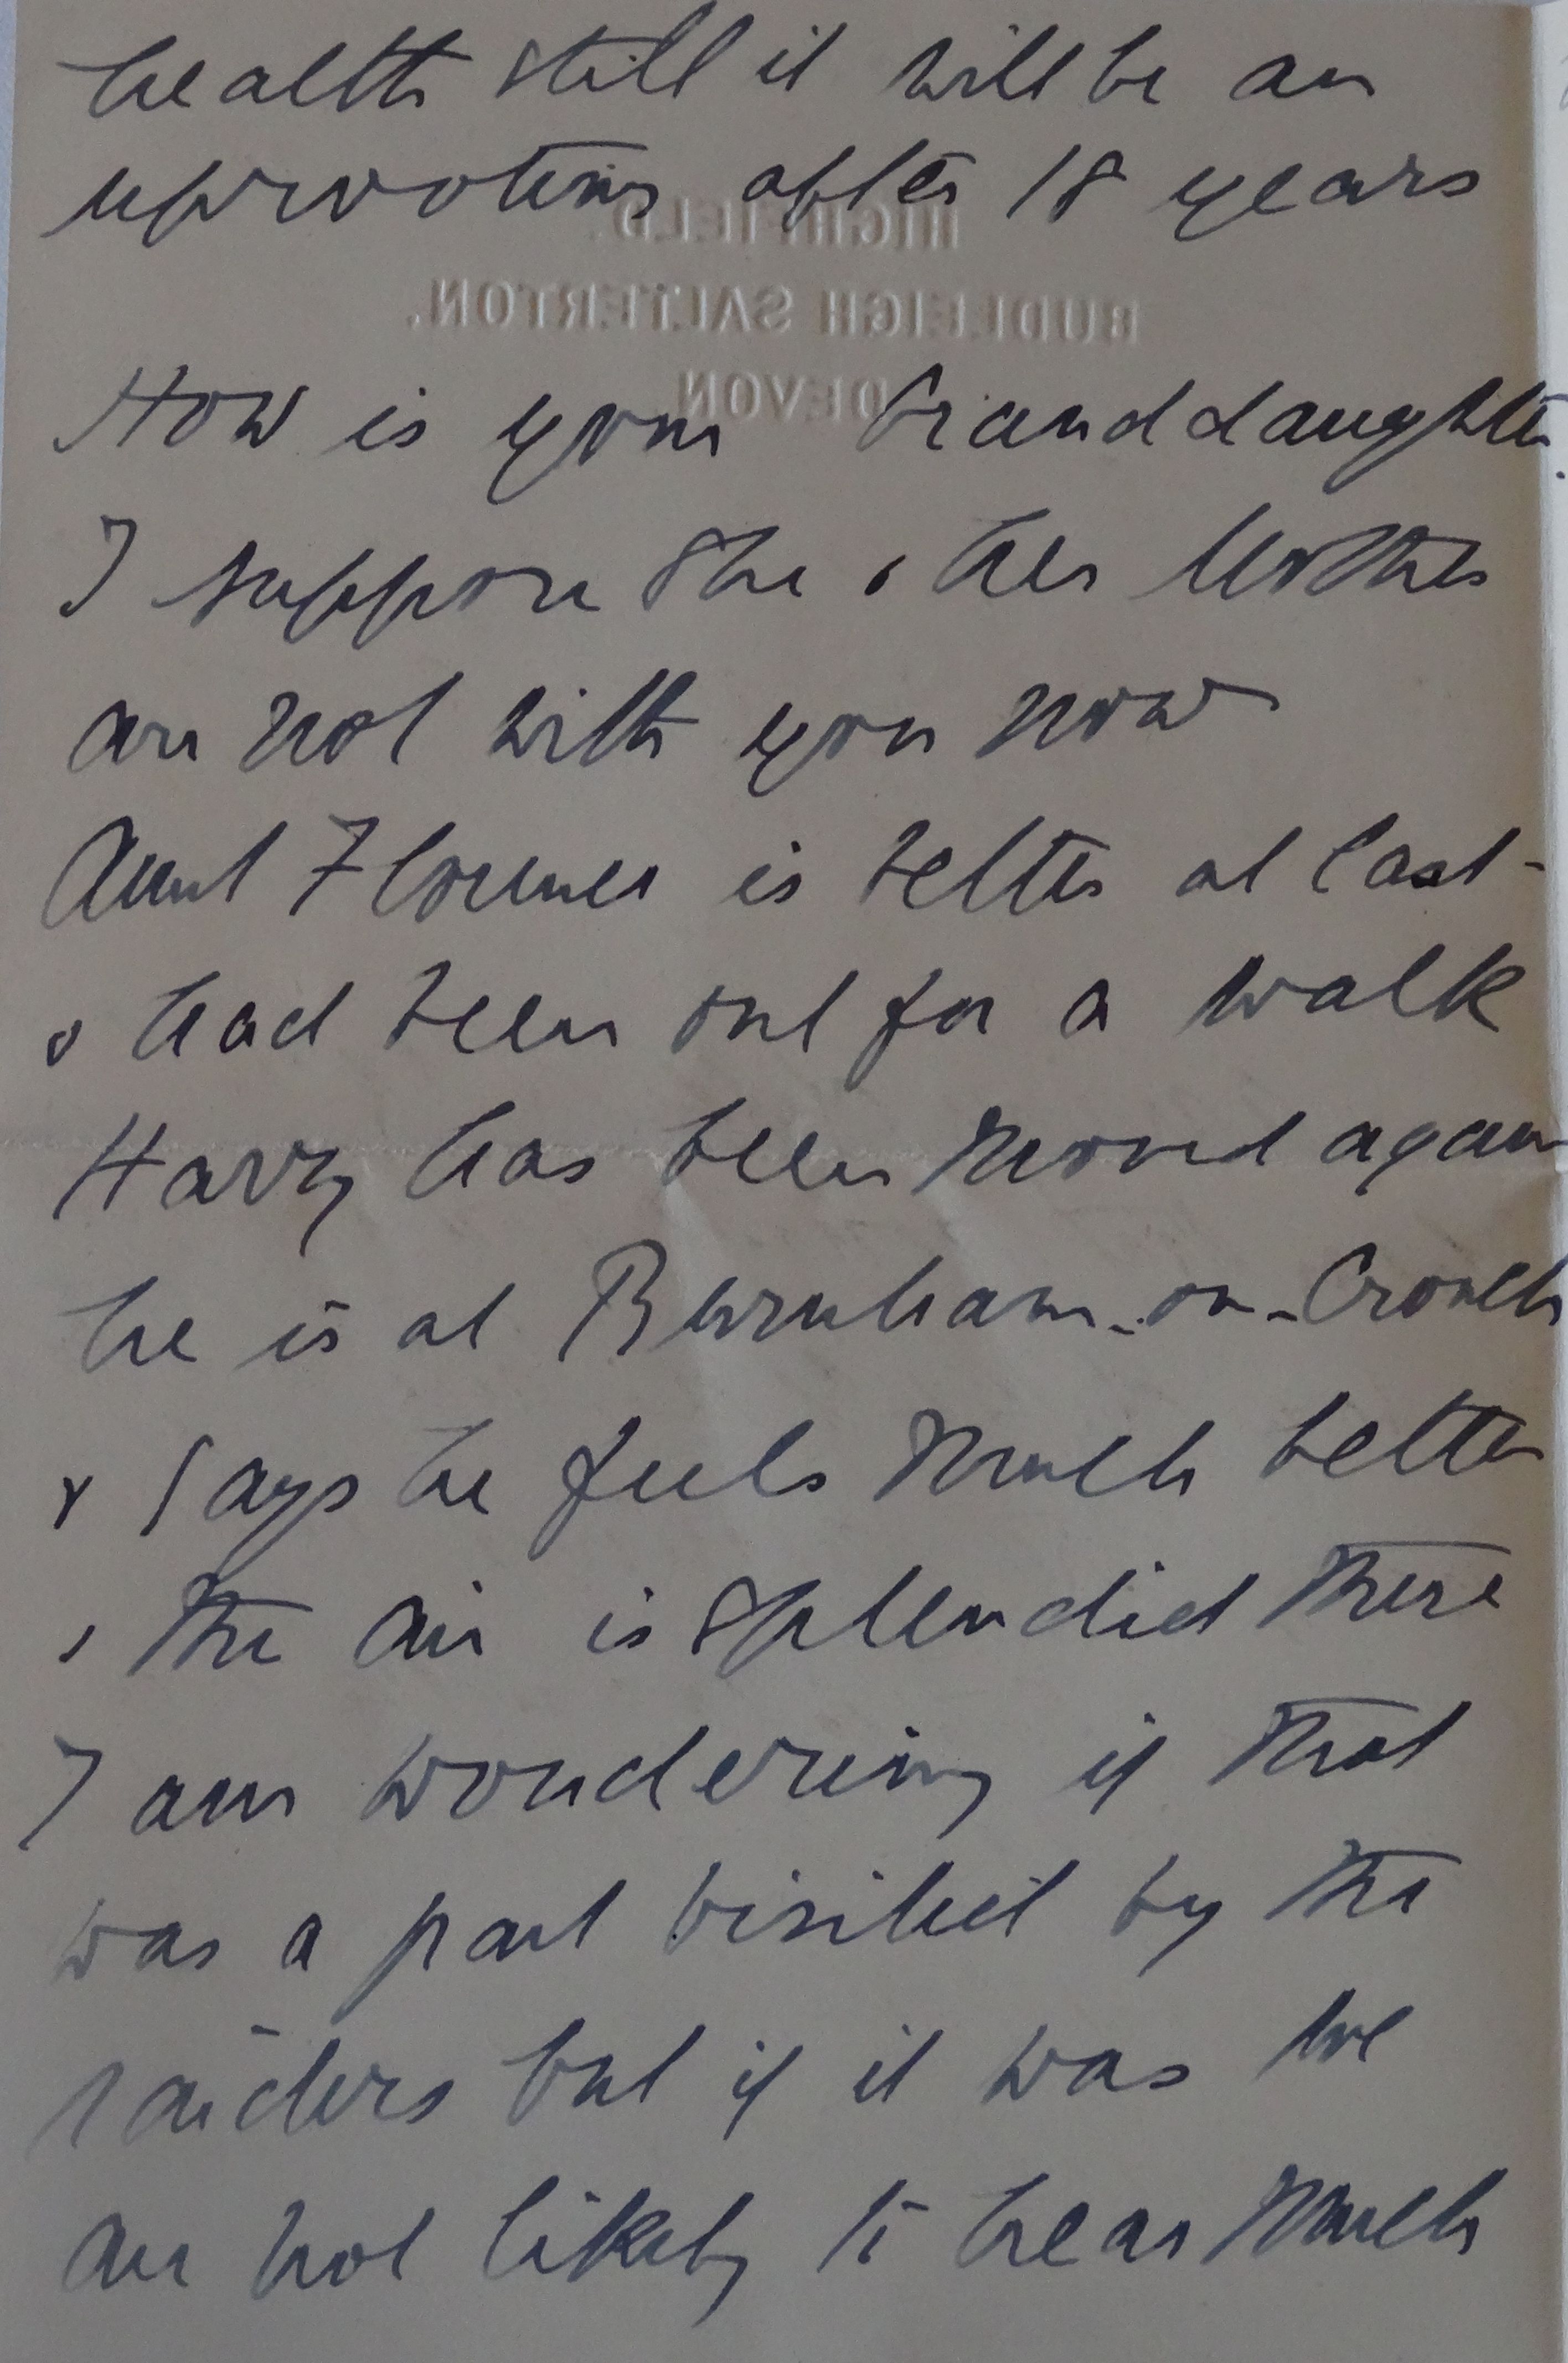 health still it will be an
uprooting after 18 years
HIGHFIELD.
BUDLEIGH SALTERTON.
DEVON
How is your Granddaughter.
I suppose she & her Mother
are not with you now
Aunt Florence is better at last -
& had been out for a walk
Harry has been moved again
he is at Burnham-on-Crouch
& says he feels much better
& the air is splendid there
I am wondering if that
was a part visited by the
raiders but if it was we
are not likely to hear much